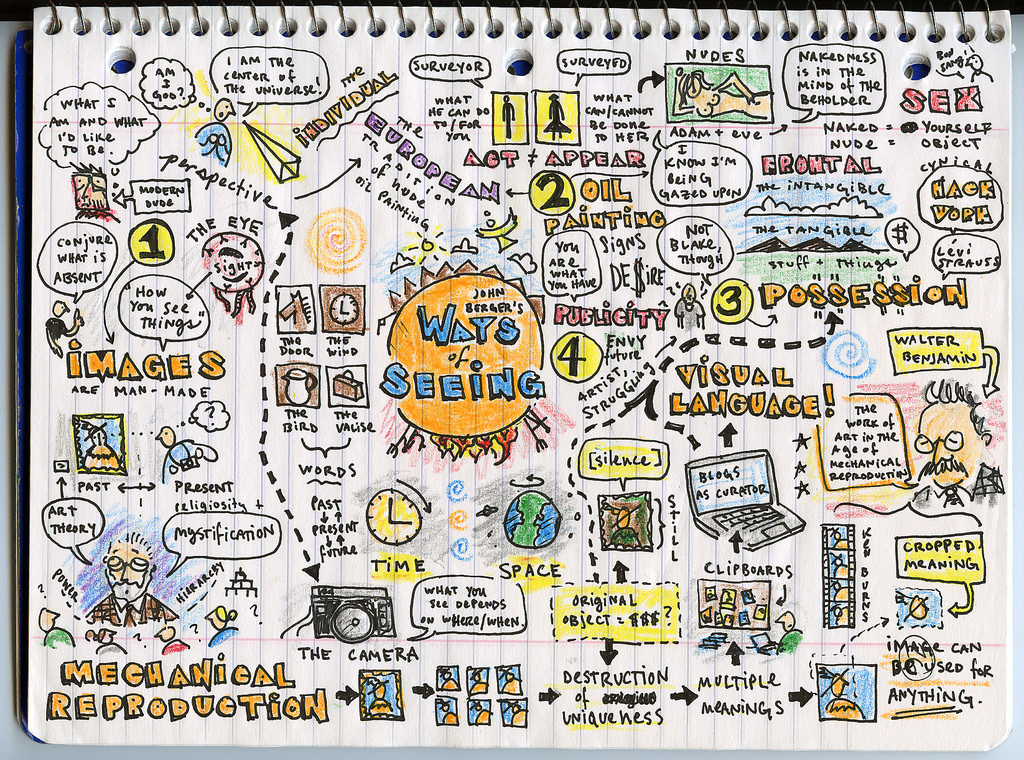 I AM THE
CENTER OF
THE UNIVERSE!
AM
I
GOD?
WHAT I
AM AND WHAT
I'D LIKE
TO BE.
MODERN
DUDE
perspective
THE
INDIVIDUAL
THE
EUROPEAN
TRADITION
OF NUDE
OIL PAINTING
SURVEYOR
WHAT
HE CAN DO
TO/FOR
YOU
SURVEYED
WHAT
CAN/CANNOT
BE DONE
TO HER
ACT ≠ APPEAR
NUDES
ADAM + EVE
NAKEDNESS
IS IN THE
MIND OF THE
BEHOLDER
I
KNOW I'M
BEING
GAZED UPON
SEX
NAKED = YOURSELF
NUDE = OBJECT
FRONTAL
1
CONJURE
WHAT IS
ABSENT
THE EYE
SIGHT
"HOW
YOU SEE
THINGS"
IMAGES
ARE MAN-MADE
PAST
PRESENT
?
ART
THEORY
religiosity +
MYSTIFICATION
POWER
HIERARCHY
? ? ? ?
THE
DOOR
THE
WIND
THE
BIRD
THE
VALISE
WORDS
PAST
PRESENT
future
JOHN
BERGER'S
WAYS
of
SEEING
TIME
SPACE
2
OIL
PAINTING
YOU
ARE
WHAT
YOU HAVE
SIGNS
DE$IRE
NOT
BLAKE,
THOUGH
THE INTANGIBLE
THE TANGIBLE
STUFF + THINGS
$
CYNICAL
HACK
WORK
LÉVI
STRAUSS
3
POSSESSION
PUBLICITY
4
ENVY
future
ARTIST,
STRUGGLING
VISUAL
LANGUAGE!
WALTER
BENJAMIN
THE
WORK OF
ART IN THE
AGE OF
MECHANICAL
REPRODUCTION
[silence]
STILL
BLOGS
AS CURATOR
CLIPBOARDS
KEN BURNS
CROPPED
MEANING
THE CAMERA
WHAT YOU
SEE DEPENDS
ON WHERE/WHEN.
ORIGINAL
OBJECT = $$$?
MECHANICAL
REPRODUCTION
DESTRUCTION
of
UNIQUENESS
MULTIPLE
MEANINGS
IMAGE CAN
BE USED FOR
ANYTHING.